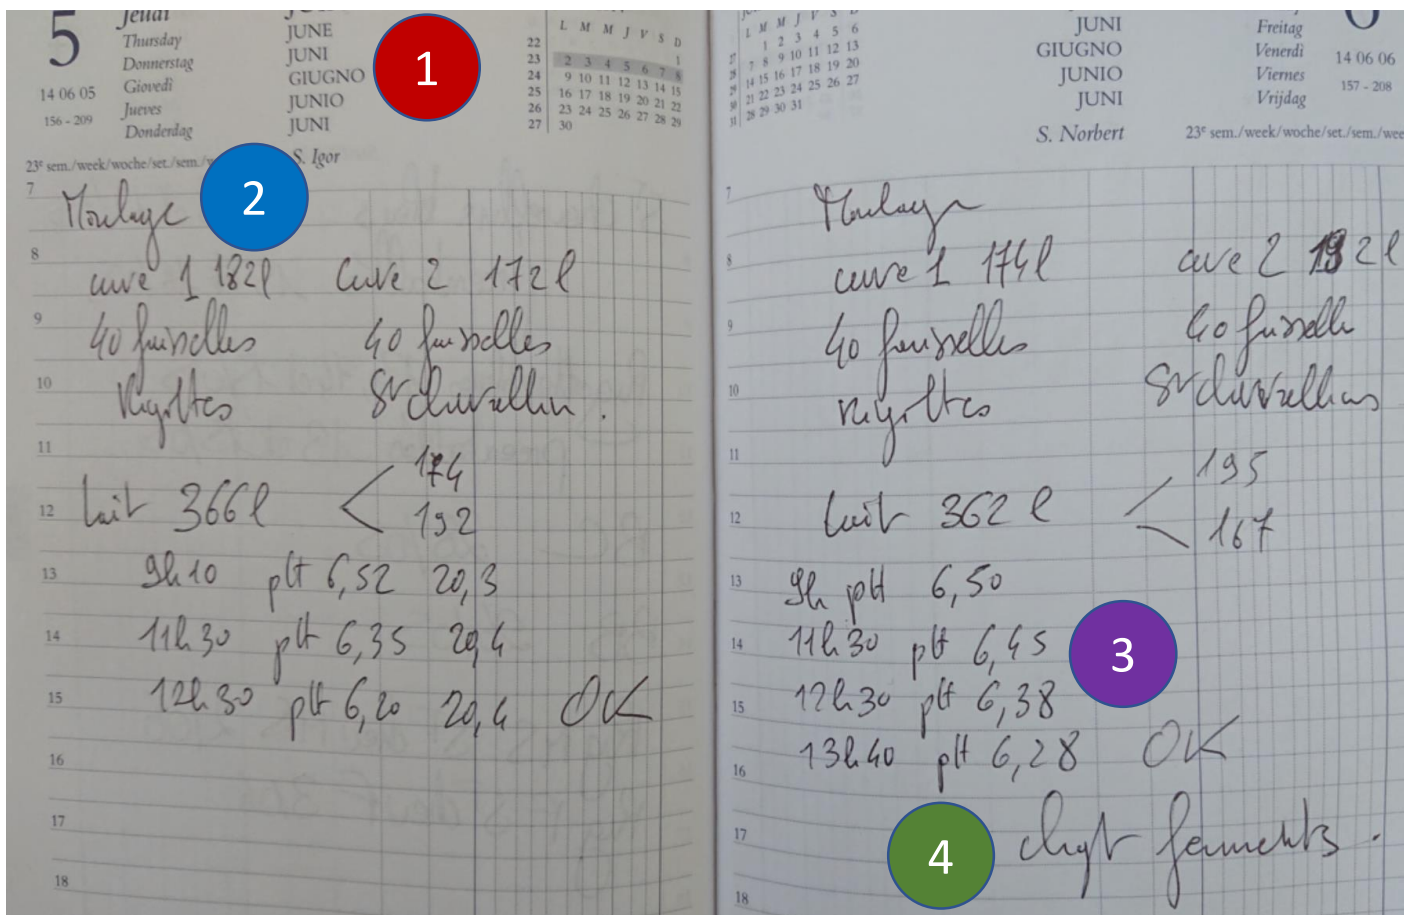 5
Jeudi
Thursday
Donnerstag
Giovedì
Jueves
Donderdag
JUNE
JUNI
GIUGNO
JUNIO
JUNI
14 06 05
156 - 209
1
L M M J V S D
22 1
23 2 3 4 5 6 7 8
24 9 10 11 12 13 14 15
25 16 17 18 19 20 21 22
26 23 24 25 26 27 28 29
27 30
23e sem./week/woche/set./sem./
S. Igor
2
7 Moulage
8 cuve 1 182l cuve 2 172l
9 40 faisselles 40 faisselles
10 Rigottes St Marcellin.
11 174
12 lait 366l < 192
13 9h10 pH 6,52 20,3
14 11h30 pH 6,35 20,4
15 12h30 pH 6,20 20,4 OK
16
17
18
L M M J V S D
1 2 3 4 5 6
27 7 8 9 10 11 12 13
28 14 15 16 17 18 19 20
29 21 22 23 24 25 26 27
31 28 29 30 31
JUNI
GIUGNO
JUNIO
JUNI
Freitag
Venerdì
Viernes
Vrijdag
6
14 06 06
157 - 208
S. Norbert
23e sem./week/woche/set./sem./wee
7 Moulage
8 cuve 1 174l cuve 2 192l
9 40 faisselles 40 faisselle
10 rigottes St
11 195
12 lait 362l < 167
13 9h pH 6,50
14 11h30 pH 6,45
3
15 12h30 pH 6,38
16 13h40 pH 6,28 OK
4
17 chgt ferments.
18